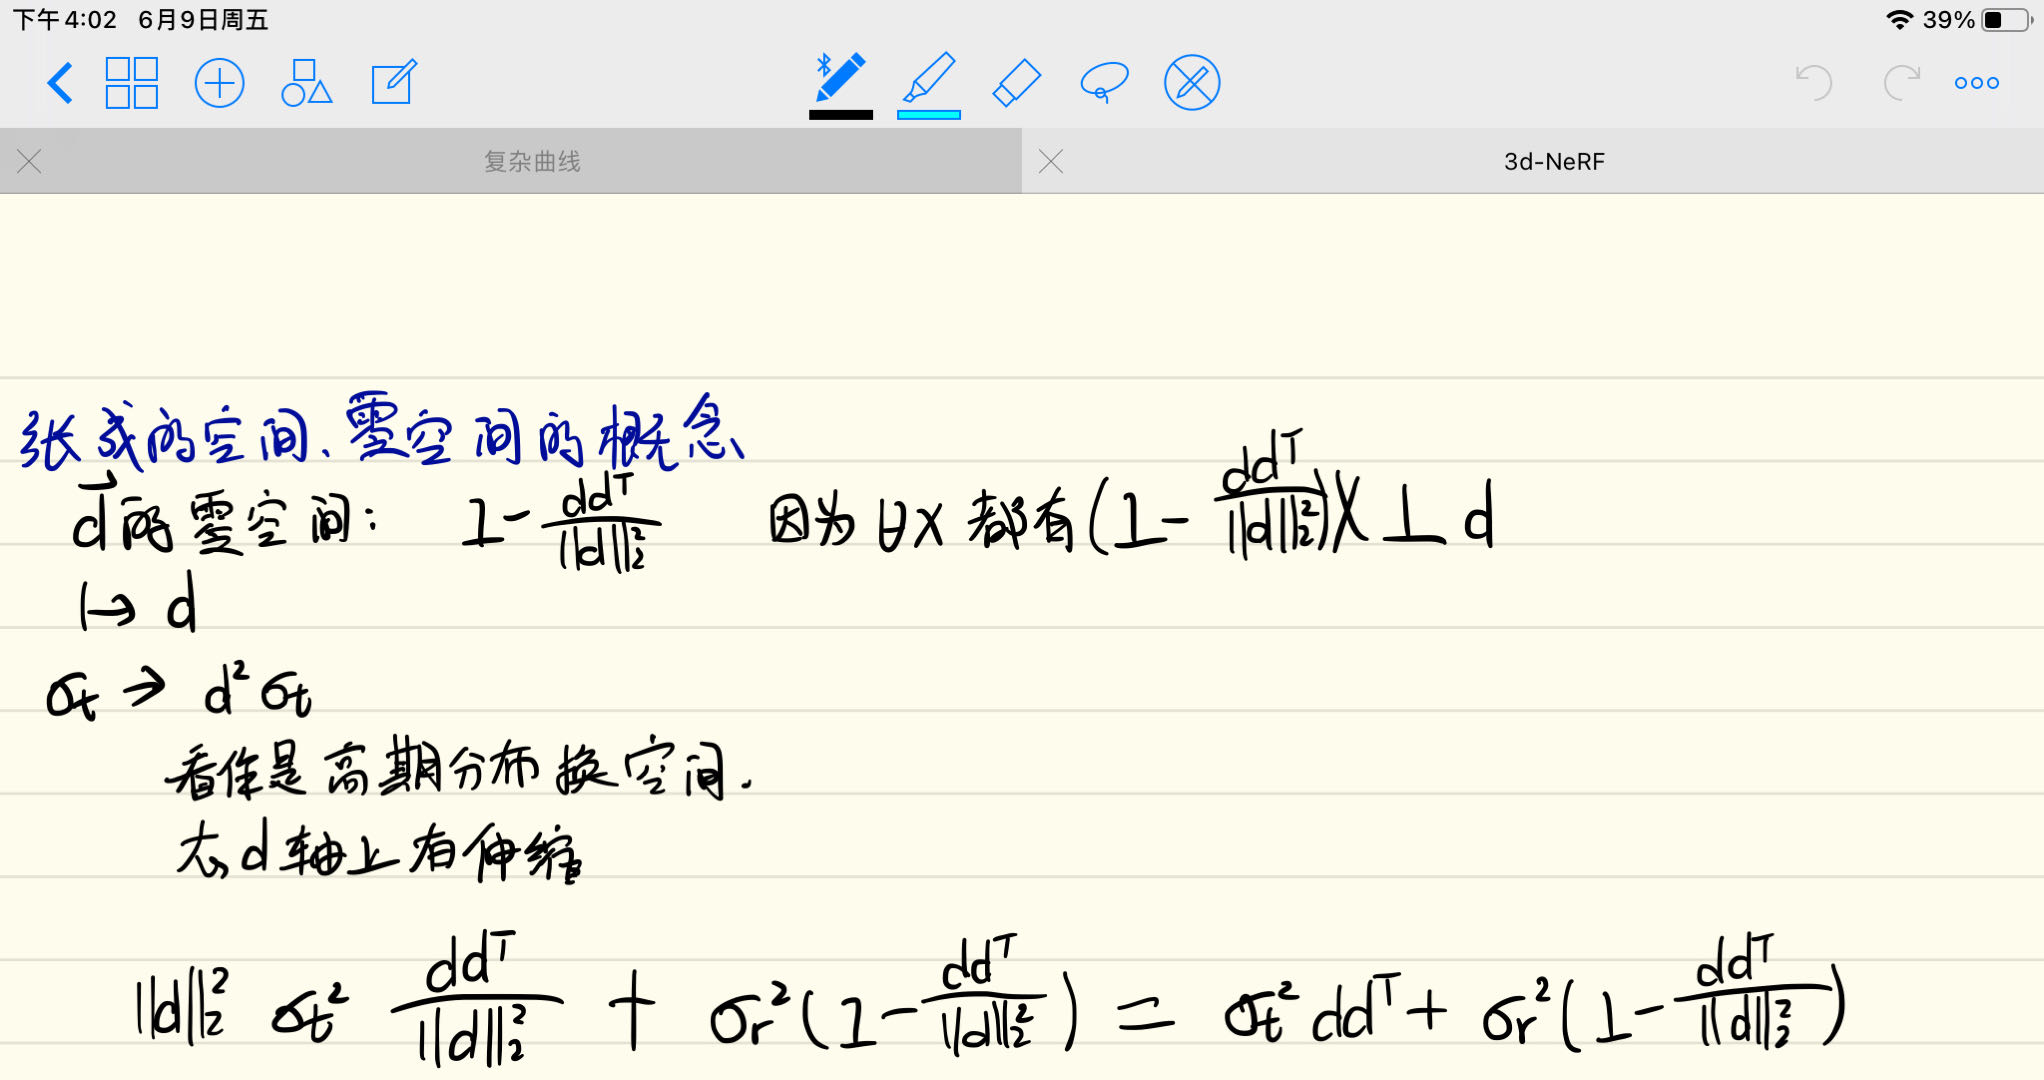 下午4:02 6月9日周五 39%
复杂曲线 3d-NeRF
张成的空间、零空间的概念
d⃗的零空间: I - ddᵀ/||d||₂² 因为 ∀x 都有 (I - ddᵀ/||d||₂²)x ⊥ d
1→ d
σt → d²σt
看作是高斯分布换空间.
在d轴上有伸缩
||d||₂² σt² ddᵀ/||d||₂² + σr²(I - ddᵀ/||d||₂²) = σt² ddᵀ + σr²(I - ddᵀ/||d||₂²)